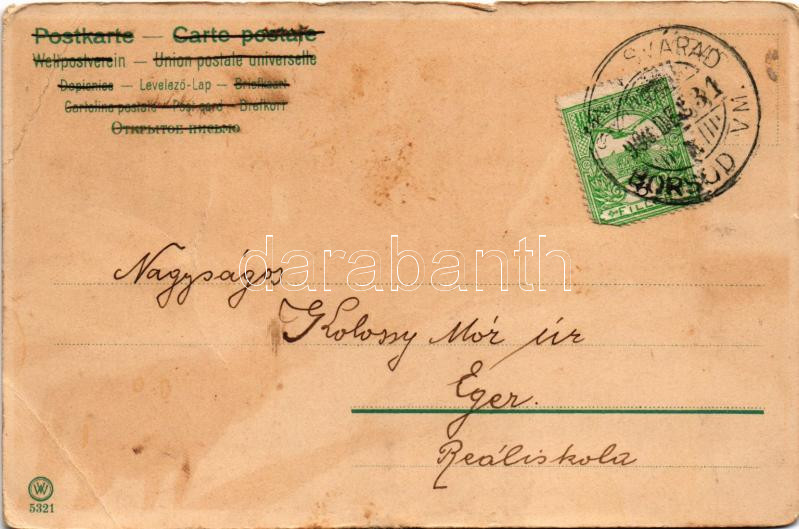 Postkarte — Carte postale
Weltpostverein — Union postale universelle
Dopisnice — Levelező-Lap — Briefkaart
Cartolina postale — Post card — Brefkort
Открытое письмо
SVÁRAD
31
BORSOD VM.
FILL
darabanth
Nagyságos
Kolossy Mór úr
Eger.
Reáliskola
W
5321